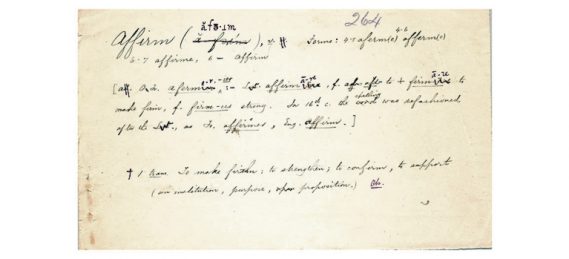 264
ăfə·ɹm
Affirm ( ), v. Forms: 4-7 aferm(e) 4-6 afferm(e)
5-7 affirme, 6- Affirm
[a. O.Fr. aferm-er :- Lat. affirmā-re, f. af- = ad- to + firmā-re to
make firm, f. firm-us strong. In 16th c. the spelling was refashioned
after the Lat., as Fr. affirmer, Eng. affirm.]
† 1 trans. To make firm; to strengthen; to confirm, to support
(an institution, purpose, proposition.) Obs.